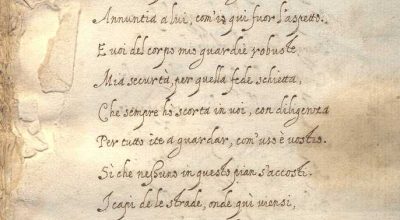 Annuntia a lui, com'io qui fuor l'aspetto.
E voi del corpo mio guardie robuste
Mia securtà, per quella fede schietta,
Che sempre hò scorta in uoi, con diligenza
Per tutto ite a guardar, com'uso è vostro.
Sì che neßuno in questo pian s'accosti.
I capi de le strade, onde quì uiensi,